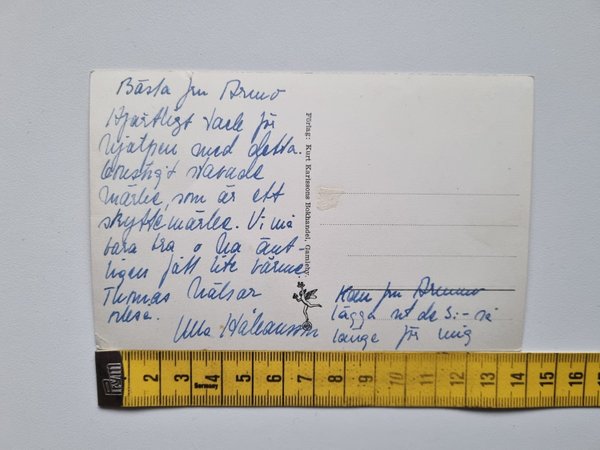 Bästa fru Armo
Hjärtligt tack för
hjälpen med detta
konstigt stavade
märke, som är ett
skyttemärke. Vi må
bara bra o ha änt-
ligen fått lite värme.
Thomas hälsar
också.
Ulla Håkansson
Förlag: Kurt Karlssons Bokhandel, Gamleby.
Kan fru
lägga ut de 5:- så
länge för mig
2 3 4 5 6 7 8 9 10 11 12 13 14 15 16
Germany